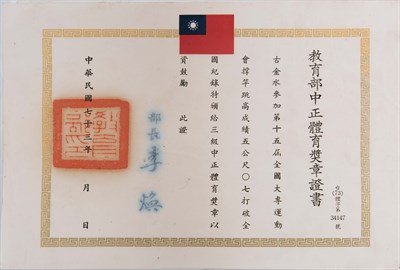 教育部中正體育獎章證書
台(73)體字第34147號
古金水參加第十五屆全國大專運動
會撐竿跳高成績五公尺〇七打破全
國紀錄特頒給三級中正體育獎章以
資鼓勵 此證
部長 李煥
中華民國七十三年 月 日